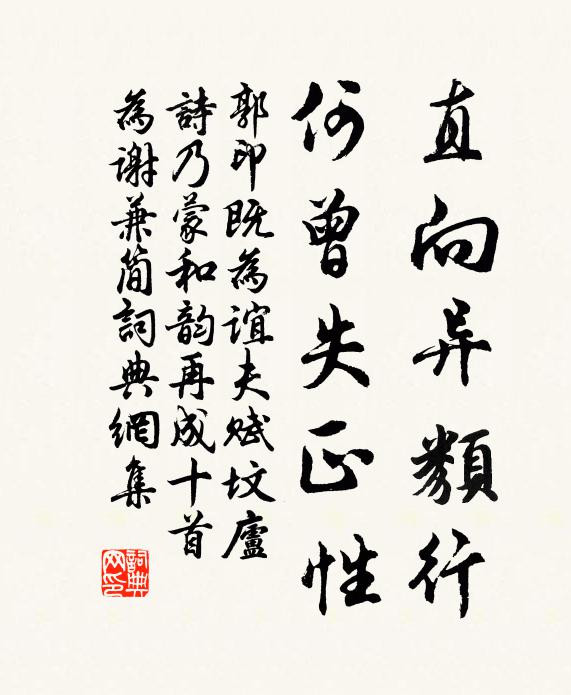 直向异類行
何曾失正性
郭印既為誼夫賦坟廬
詩乃蒙和韵再成十首
為谢兼简詞典網集
詞典网印